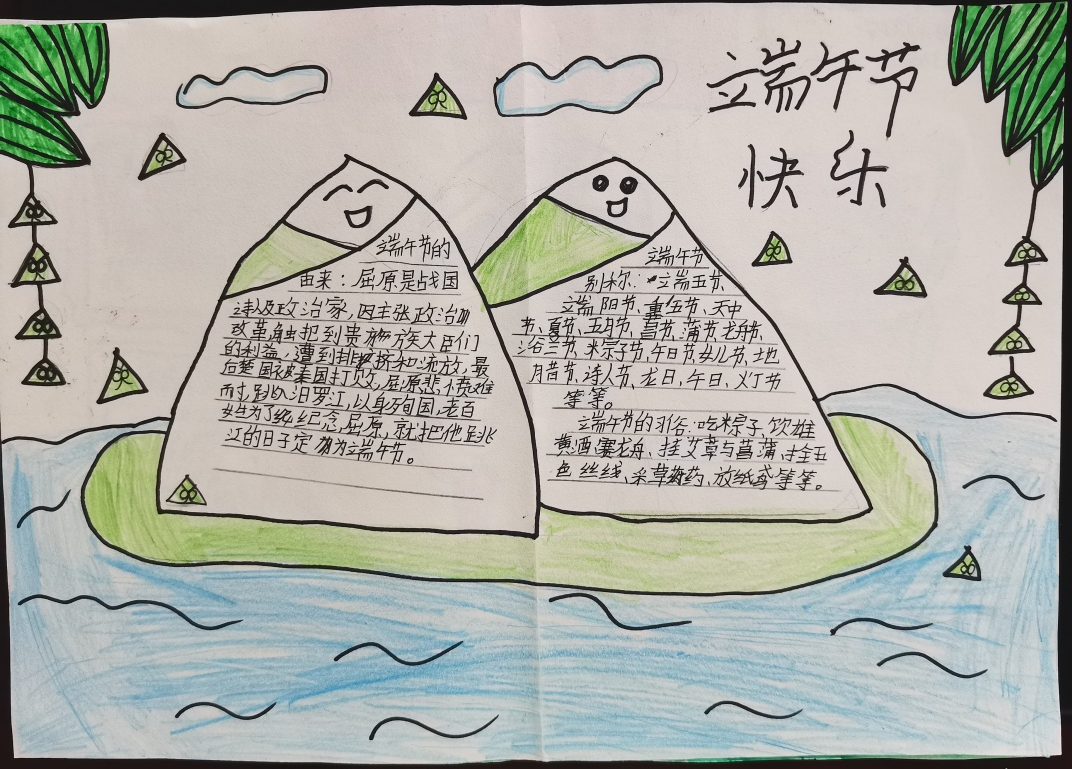 端午节
快乐
端午节的
由来：屈原是战国
诗人及政治家，因主张政治
改革触犯到贵族大臣们
的利益，遭到排挤和流放，最
后楚国被秦国打败，屈原悲愤难
而寸，跳入汨罗江，以身殉国，老百
姓为了纪念屈原，就把他跳
江的日子定为端午节。
端午节
别称：端五节、
端阳节、重午节、天中
节、夏节、五月节、菖节、蒲节、龙舟节、
浴兰节、米宗子节、午日节、女儿节、地
月昔节、诗人节、龙日、午日、火丁节
等等。
端午节的习俗：吃粽子、饮雄
黄酒、赛龙舟、挂艾草与菖蒲、拴五
色丝线、采草药、放纸鸢等等。